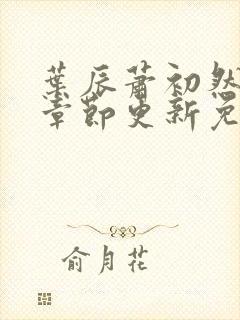 葉辰蕭初然
章節更新免
俞月花